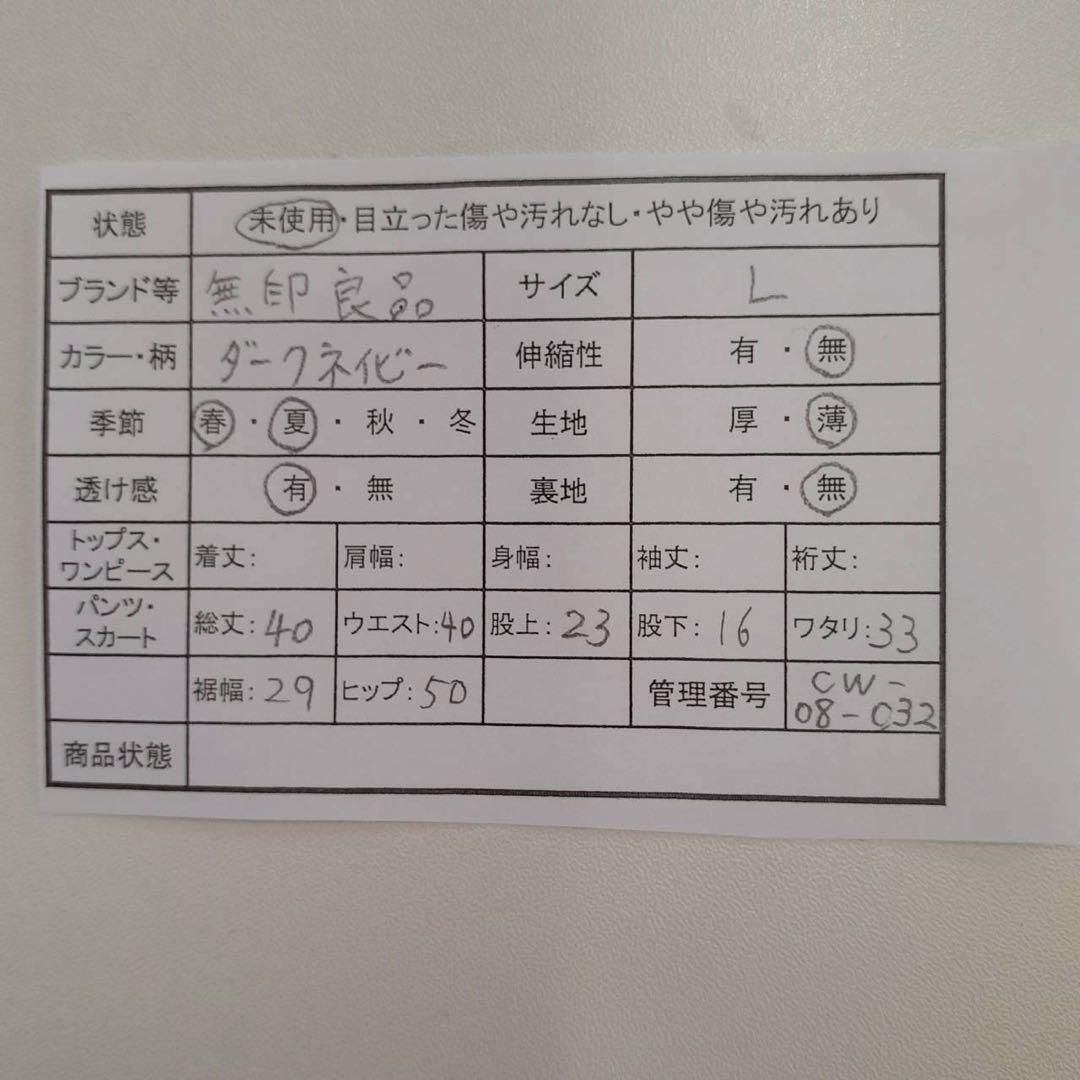 状態 未使用・目立った傷や汚れなし・やや傷や汚れあり
ブランド等 無印良品 サイズ L
カラー・柄 ダークネイビー 伸縮性 有・無
季節 春・夏・秋・冬 生地 厚・薄
透け感 有・無 裏地 有・無
トップス・
ワンピース 着丈: 肩幅: 身幅: 袖丈: 裄丈:
パンツ・
スカート 総丈:40 ウエスト:40 股上:23 股下:16 ワタリ:33
裾幅:29 ヒップ:50 管理番号 CW-
08-032
商品状態